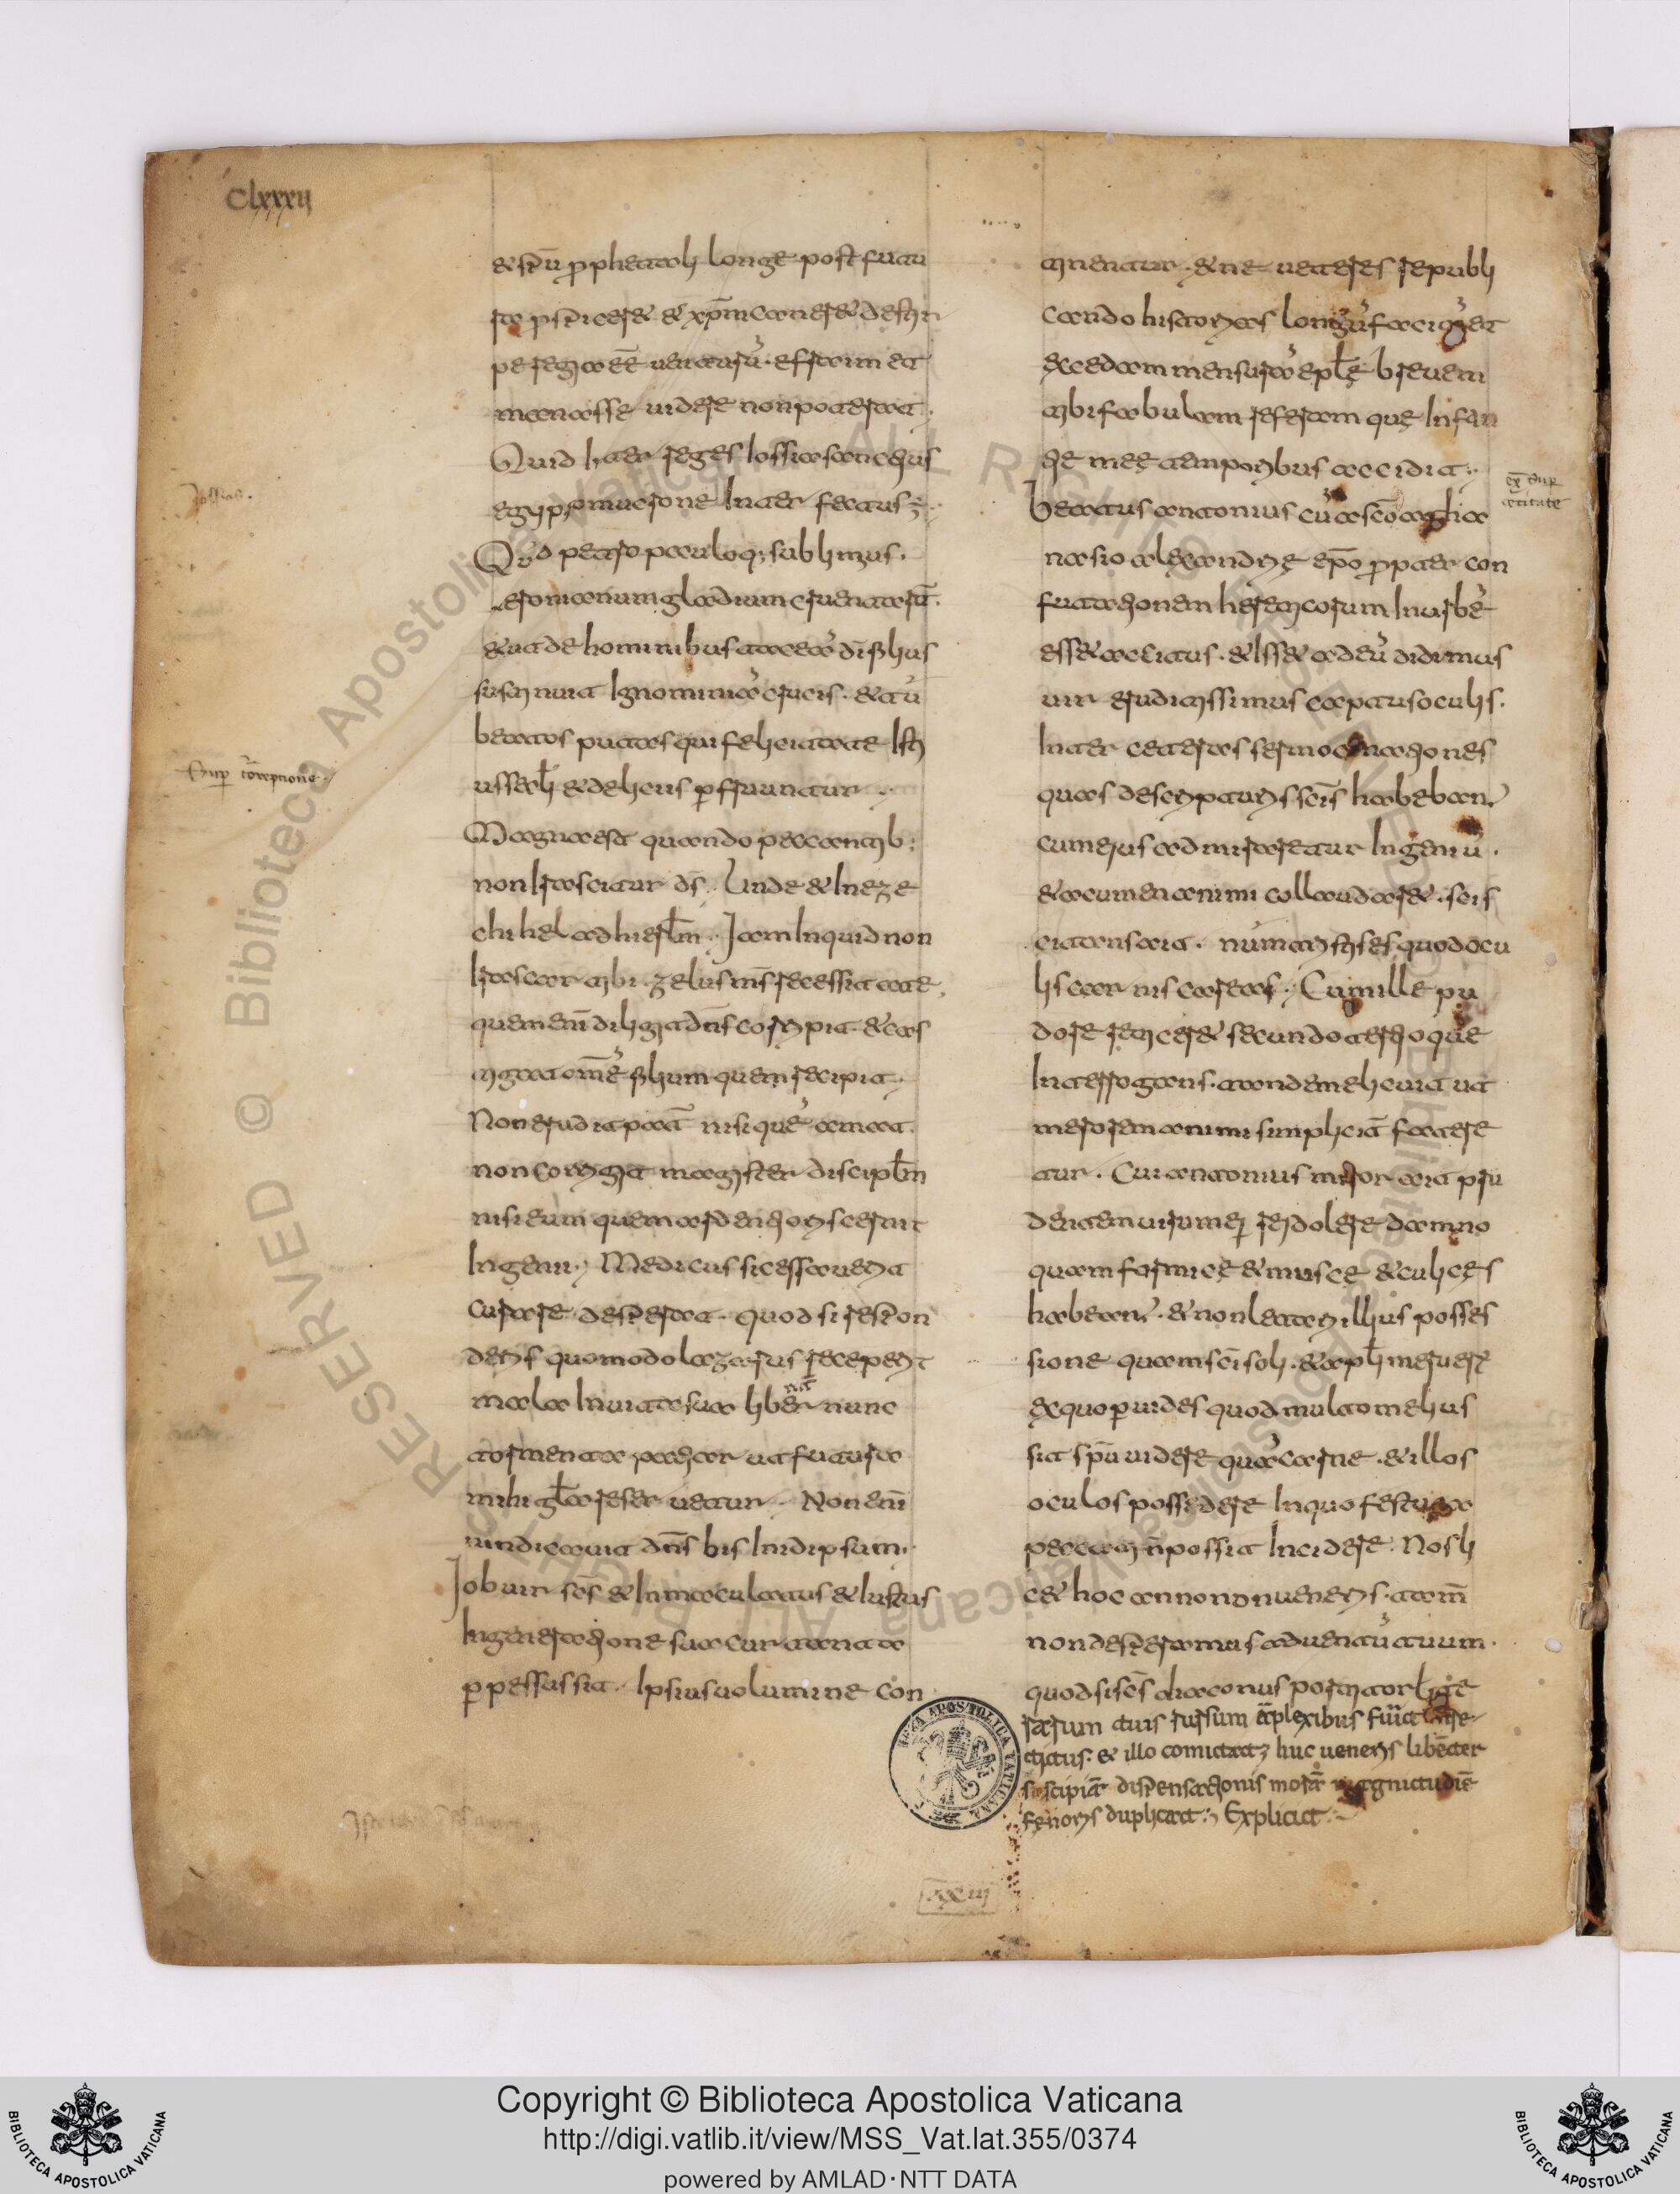 Clxxxii
& spū prophetali longe post futu
ra pspicere & xpm carnes & de stir
pe regia eē uenturū. effraim et
manasse uidere non poterat.
Quid inter reges Iossia sanctius
egyptio mucrone Inter fectus ē.
Quid petro pauloq; sublimius.
neronianum gladium cruentarū.
& ut de hominibus taceā dī filius
sustinuit Ignominiā crucis. & tu
beatos putas qui felicitate Isti
us sēcli & deliciis p fruuntur.
Magna est quando peccantib;
non Irascitur ds. Unde & In eze
chihel ad hierslm. Iam Inquid non
Irascar tibi. zelus ms recessit a te.
quem enī diligit dns corripit. & cas
tigat omē filium quem recipit.
Non erudit pat nisi quē amat.
non corrigit magister disciplm
nisi eum quem ardentioris cernit
Ingenii. Medicus si cessauerit
curare desperat. quod si respon
deris quomodo lazarus recepit
mala In uita sua liber nunc
tormenta patiar ut futura
mihi gla reseruetur. Non enī
uindicauit dns bis In id ipsum.
Iob uir scs & Inmaculatus & Iustus
In generatione sua cur tanta
p pessus sit. Ipsius uolumine con
tinetur. & ne ueteres republi
cando historias longū faciā &
excedam mensurā eplę breuem
tibi fabulam referam quę Infan
tię meę temporibus accidit.
beatus antonius cū a sco atha
nasio alexandrię epo propter con
futationem hereticorum In urbē
esset accitus. & Isset ad eū didimus
uir eruditissimus captus oculis.
Inter ceteras sermocinationes
quas de scripturis scis habebant
cum eius admiraretur Ingeniū.
& acumen animi collaudaret. scis
citans ait. num tristaris quod ocu
lis carnis careas. Cum ille pu
dore reticeret secundo tertioque
Interrogans. tandem elicuit ut
merorem animi simpliciter fatere
tur. Cui antonius miror ait pru
dentem uirum ei rei dolere damno
quam formicę & muscę & culices
habeant. & non letari illius posses
sione quam sci soli. & apli meruert
ex quo puides quod multo melius
sit spu uidere quā carne. & illos
oculos possidere In quo festuca
peccati n possit Incidere. Nos li
cet hoc anno non ueneris. tam
non desperamus aduentū tuum.
quod si scs diaconus portitor lit
rarum tuis rursum cōplexibus fuit inre
titus. & illo comitat; huc ueneris libenter
suscipiā dispensationis morā magnitudinē
fenoris duplicat. Explicit.
Iossias.
Super correptione.
BIBLIOTECA APOSTOLICA VATICANA
RESERVED © Biblioteca Apostolica Vaticana ALL RIGHTS RESERVED
Copyright © Biblioteca Apostolica Vaticana
http://digi.vatlib.it/view/MSS_Vat.lat.355/0374
powered by AMLAD·NTT DATA
BIBLIOTECA APOSTOLICA VATICANA
BIBLIOTECA APOSTOLICA VATICANA